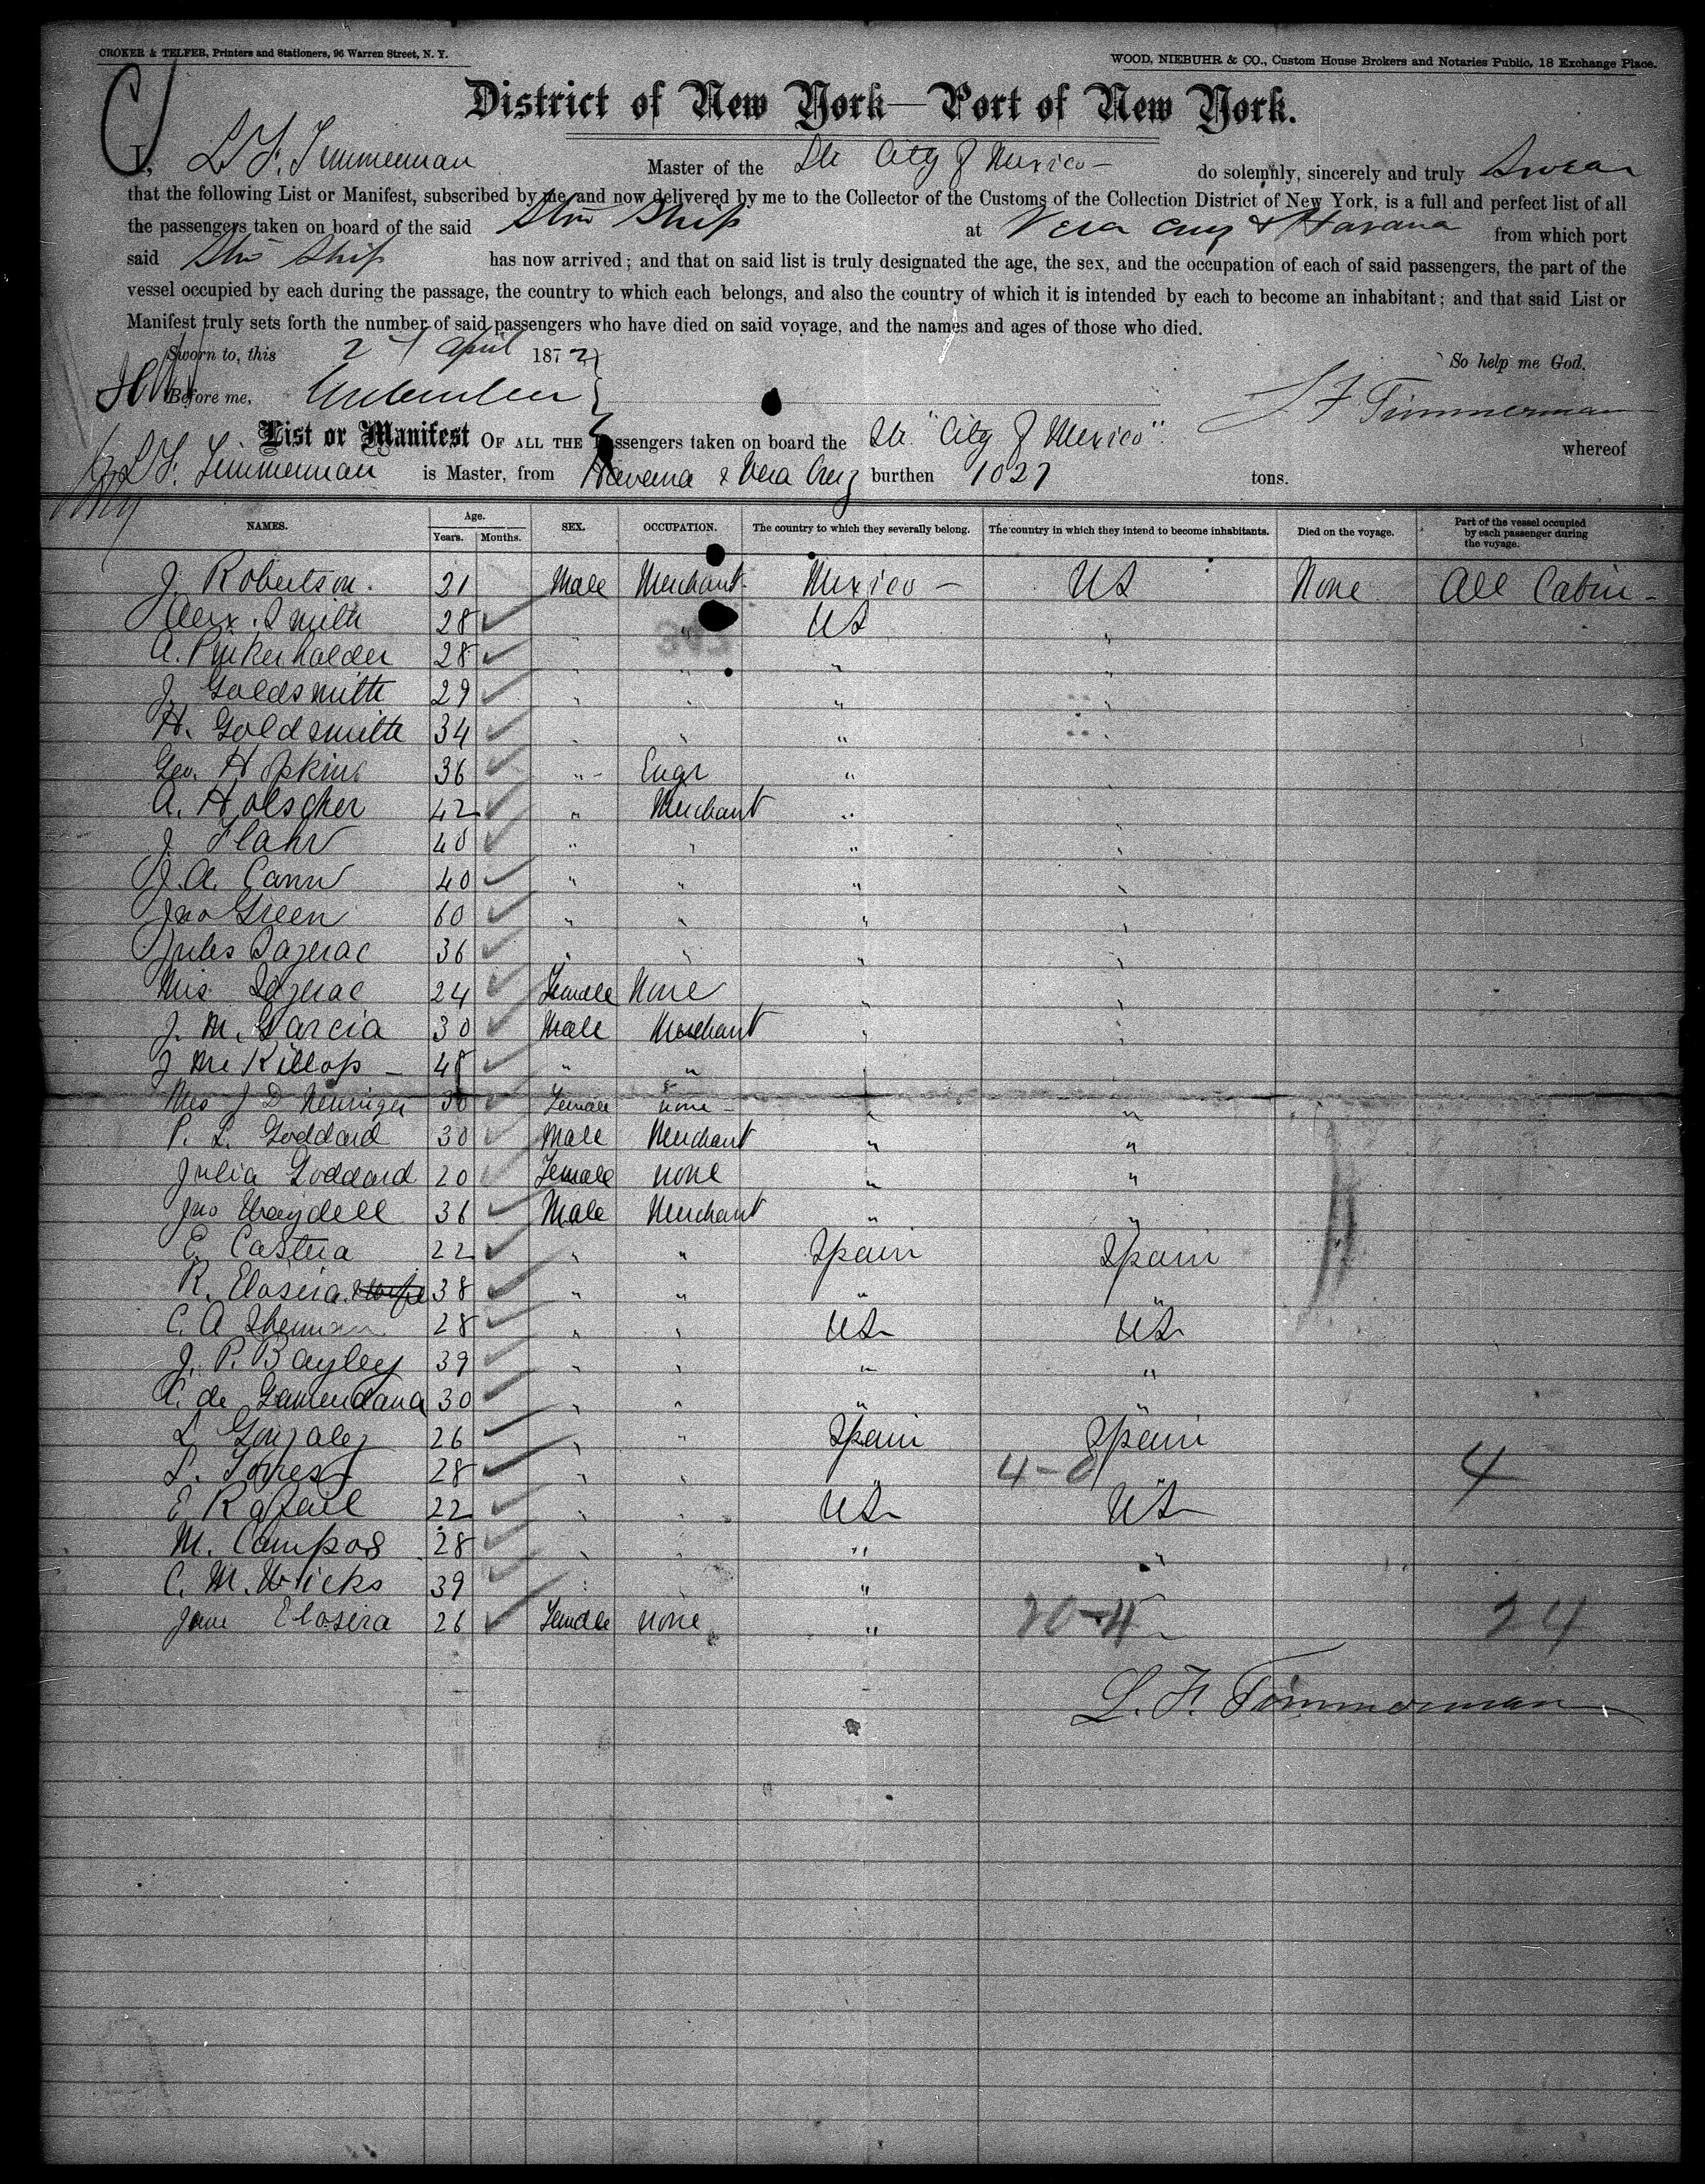 CROKER & TELFER, Printers and Stationers, 96 Warren Street, N. Y.
WOOD, NIEBUHR & CO., Custom House Brokers and Notaries Public, 18 Exchange Place.
District of New York—Port of New York.
I, L F. Timmerman Master of the Str City of Mexico – do solemnly, sincerely and truly Swear
that the following List or Manifest, subscribed by me and now delivered by me to the Collector of the Customs of the Collection District of New York, is a full and perfect list of all
the passengers taken on board of the said Stm Ship at Vera Cruz & Havana from which port
said Stm Ship has now arrived; and that on said list is truly designated the age, the sex, and the occupation of each of said passengers, the part of the
vessel occupied by each during the passage, the country to which each belongs, and also the country of which it is intended by each to become an inhabitant; and that said List or
Manifest truly sets forth the number of said passengers who have died on said voyage, and the names and ages of those who died.
Sworn to, this 2 April 1872 So help me God.
Before me, L F Timmerman
List or Manifest OF ALL THE Passengers taken on board the Str. "City of Mexico". whereof
L F. Timmerman is Master, from Havana & Vera Cruz burthen 1027 tons.
NAMES. Age. Years. Months. SEX. OCCUPATION. The country to which they severally belong. The country in which they intend to become inhabitants. Died on the voyage. Part of the vessel occupied by each passenger during the voyage.
J. Robertson. 21 Male Merchant Mexico – US None All Cabin –
Alex. Smith 28 " US "
A. Pinkerhalder 28 " " " "
J. Goldsmith 29 " " " "
H. Goldsmith 34 " " " "
Geo. Hopkins 36 " Engr "
A. Holscher 42 " Merchant "
J 40 " " " "
J. A. Cann 40 " " " "
Jno Green 60 " " " "
Jules Sazerac 36 " " " "
Mrs Sazerac 24 Female None " "
J. M. Garcia 30 Male Merchant " "
J McKillop – 48 " "
Mrs J D 30 Female none – " "
P. L. Goddard 30 Male Merchant " "
Julia Goddard 20 Female none " "
Jno Waydell 36 Male Merchant " "
E. Castria 22 " " Spain Spain
R. Elosera & wife 38 " " " "
C. A Sherman 28 " " US US
J. P. Bayley 39 " " " "
C. de Gamendana 30 " " " "
L Gonzalez 26 " " Spain Spain
L. Torres 28 " " " " 4-0 4
E Rafael 22 " " US US
M. Campos 28 " " " "
C. M. Wicks 39 " " "
Jane Elosera 26 Female none " 20-4 24
L. F. Timmerman